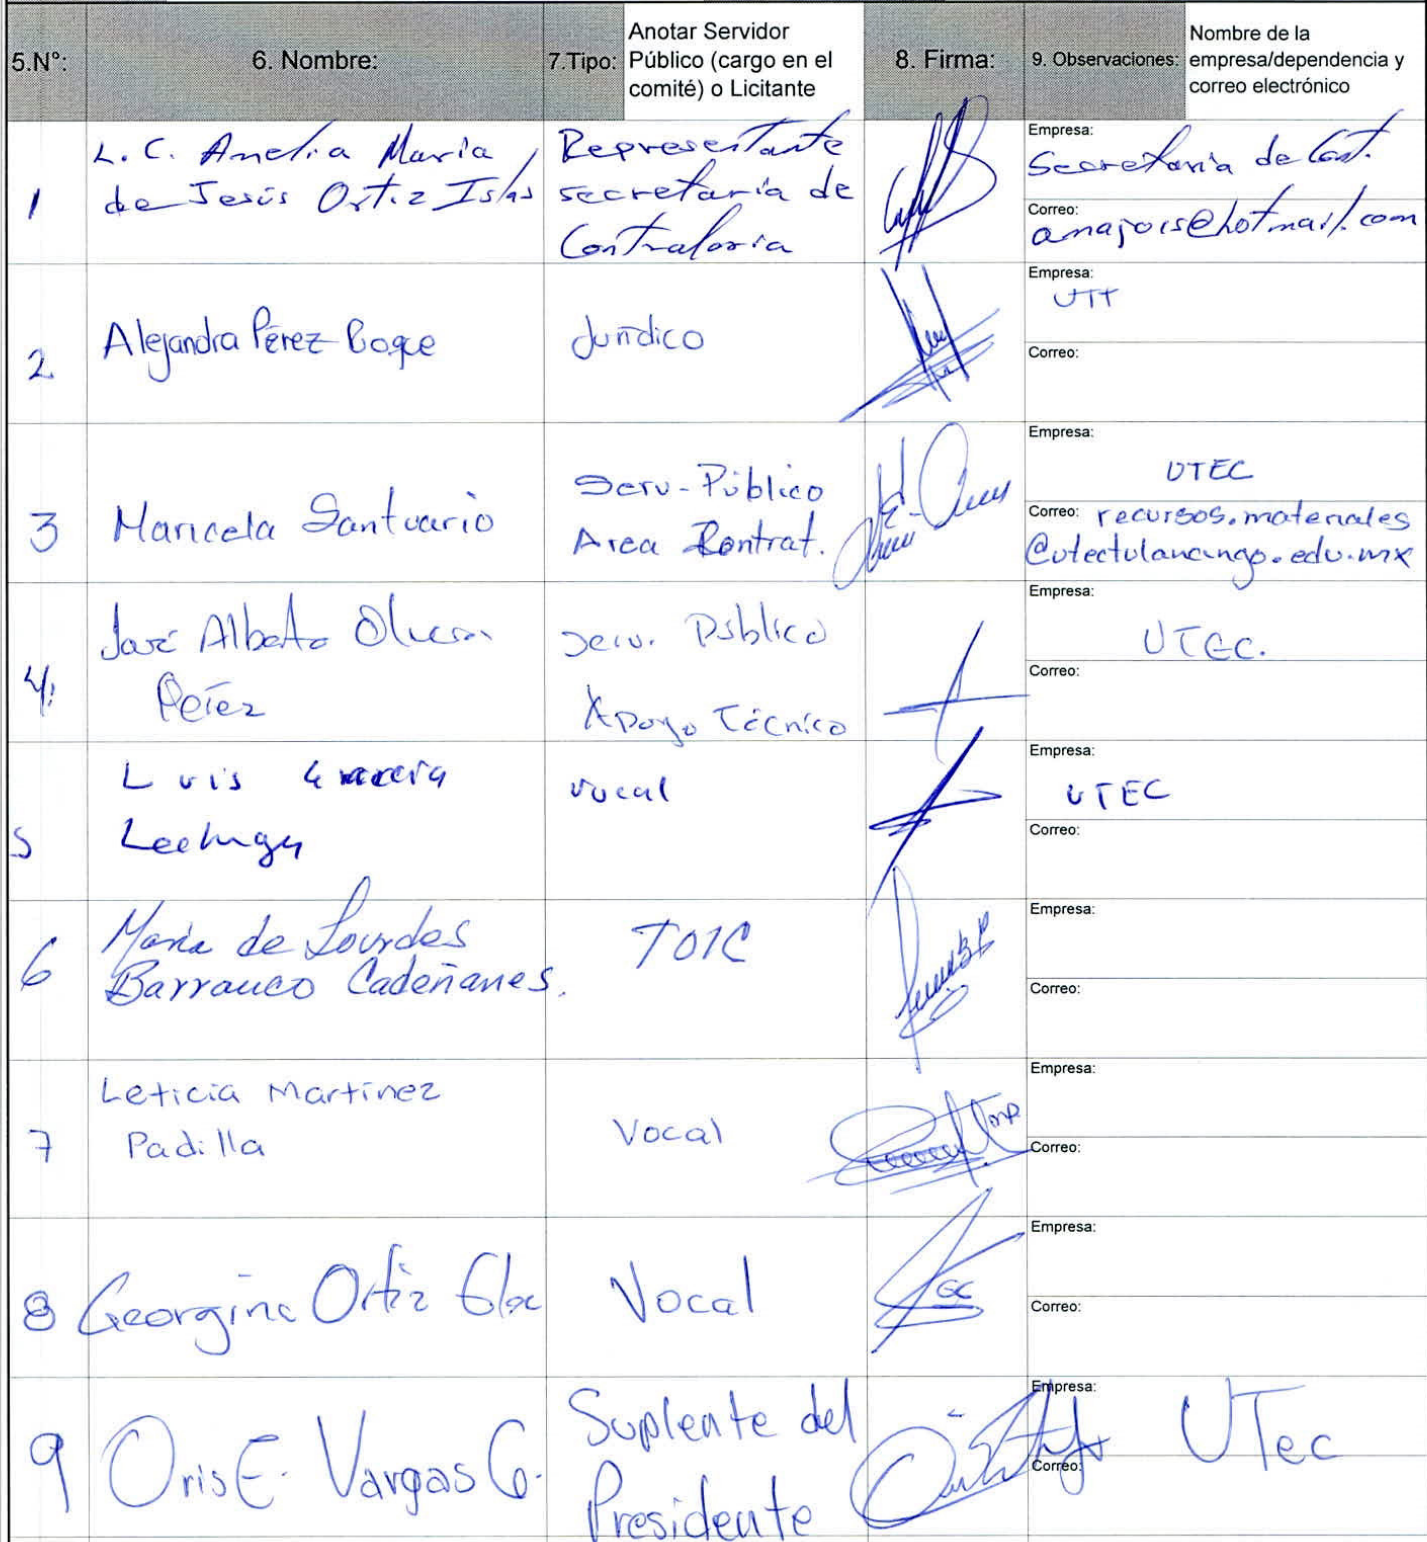 5.N°:
6. Nombre:
7.Tipo:
Anotar Servidor
Público (cargo en el
comité) o Licitante
8. Firma:
9. Observaciones:
Nombre de la
empresa/dependencia y
correo electrónico
1
L. C. Amelia Maria
de Jesús Ortiz Islas
Representante
secretaría de
Contraloria
Empresa:
Secretaria de Cont.
Correo:
amajois@hotmail.com
2
Alejandra Pérez
Jurídico
Empresa:
UTT
Correo:
3
Maricela Santuario
Serv-Público
Area Contrat.
Empresa:
UTEC
Correo: recursos.materiales
@utectulancingo.edu.mx
4
José Alberto Olvera
Pérez
Serv. Público
Apoyo Técnico
Empresa:
UTEC.
Correo:
5
Luis García
Lechuga
vocal
Empresa:
UTEC
Correo:
6
María de Lourdes
Barranco Cadeñanes.
TOIC
Empresa:
Correo:
7
Leticia Martínez
Padilla
Vocal
Empresa:
Correo:
8
Georgina Ortiz
Vocal
Empresa:
Correo:
9
Oris E. Vargas G.
Suplente del
Presidente
Empresa:
UTec
Correo: